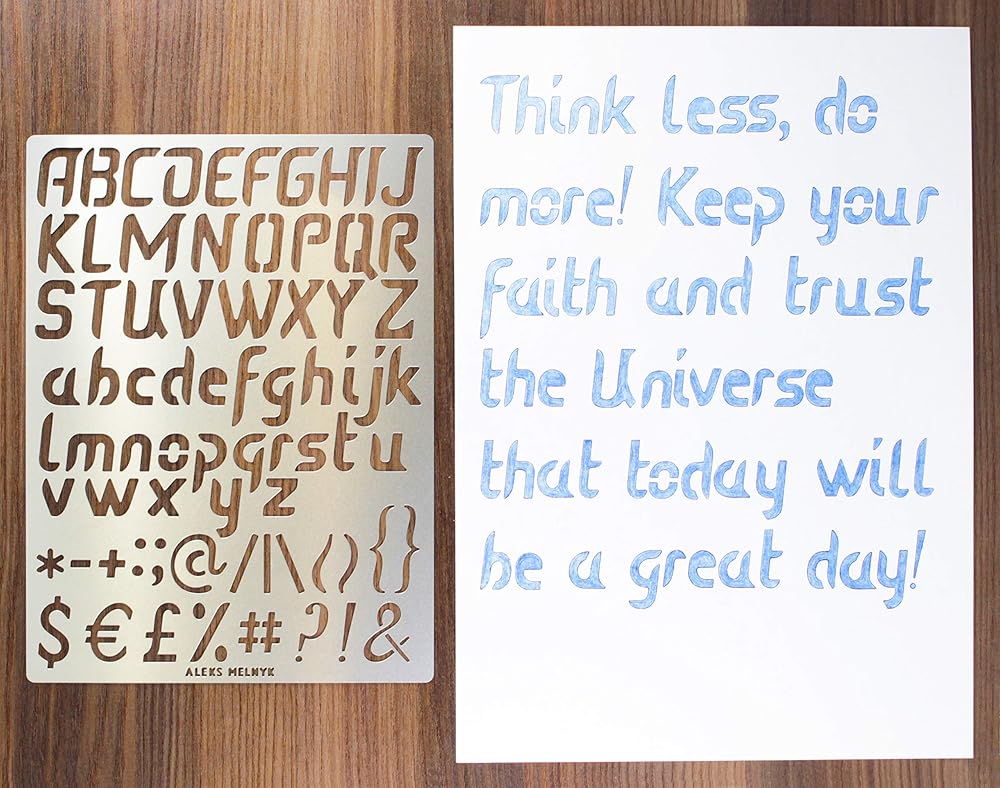 ABCDEFGHIJ
KLMNOPQR
STUVWXYZ
abcdefghijk
lmnopqrstu
vwxyz
*-+:;@/|\(){}
$€£%#?!&
ALEKS MELNYK
Think less, do
more! Keep your
faith and trust
the Universe
that today will
be a great day!